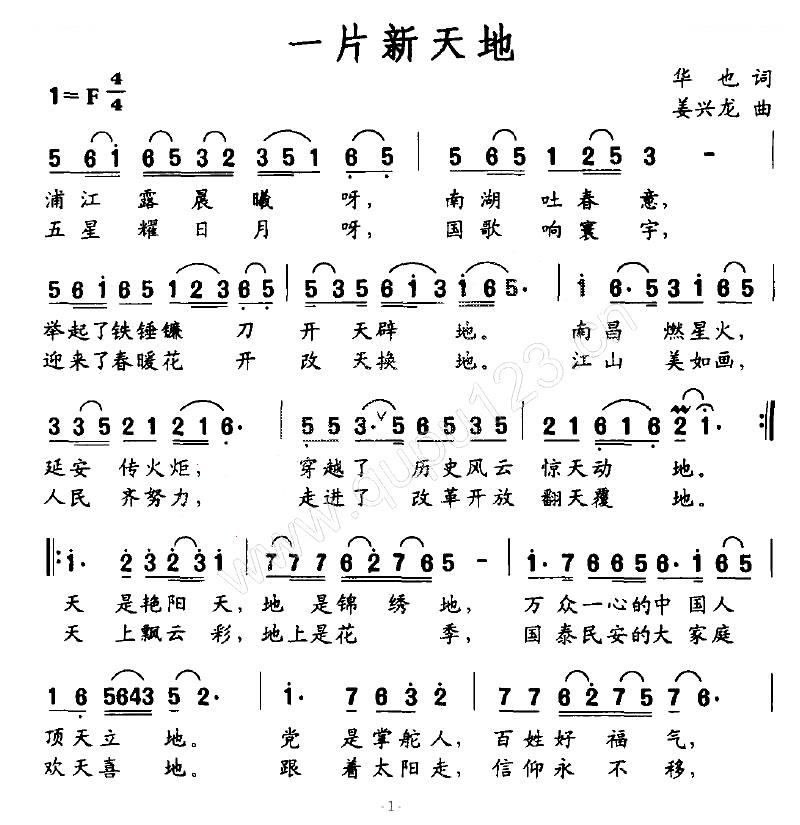 一片新天地
1=F 4/4
华也词
姜兴龙 曲
5 6 1 6 5 3 2 3 5 1 6 5 | 5 6 5 1 2 5 3 - |
浦江露晨曦呀， 南湖吐春意，
五星耀日月呀， 国歌响寰宇，
5 6 1 6 5 1 2 3 6 5 | 5 3 5 6 1 3 1 6 5· | 1 6· 5 3 1 6 5 |
举起了铁锤镰 刀开天辟 地。 南昌 燃星火，
迎来了春暖花 开改天换 地。 江山 美如画，
3 3 5 2 1 2 1 6· | 5 5 3· 5 6 5 3 5 | 2 1 6 1 6 2 1· :|
延安 传火炬； 穿越了 历史风云 惊天动 地。
人民 齐努力， 走进了 改革开放 翻天覆 地。
|: 1· 2 3 2 3 1 | 7 7 7 6 2 7 6 5 - | 1· 7 6 6 5 6· 1 6 5 |
天 是艳阳 天，地 是锦 绣 地， 万 众一心的中 国人
天 上飘云 彩，地上是花 季， 国 泰民安的大 家庭
1 6 5643 5 2· | 1· 7 6 3 2 | 7 7 6 2 7 5 7 6· |
顶天立 地。 党 是掌舵人，百姓好 福 气，
欢天喜 地。 跟 着太阳走，信仰永 不 移，
www.qupu123.cn
-1-